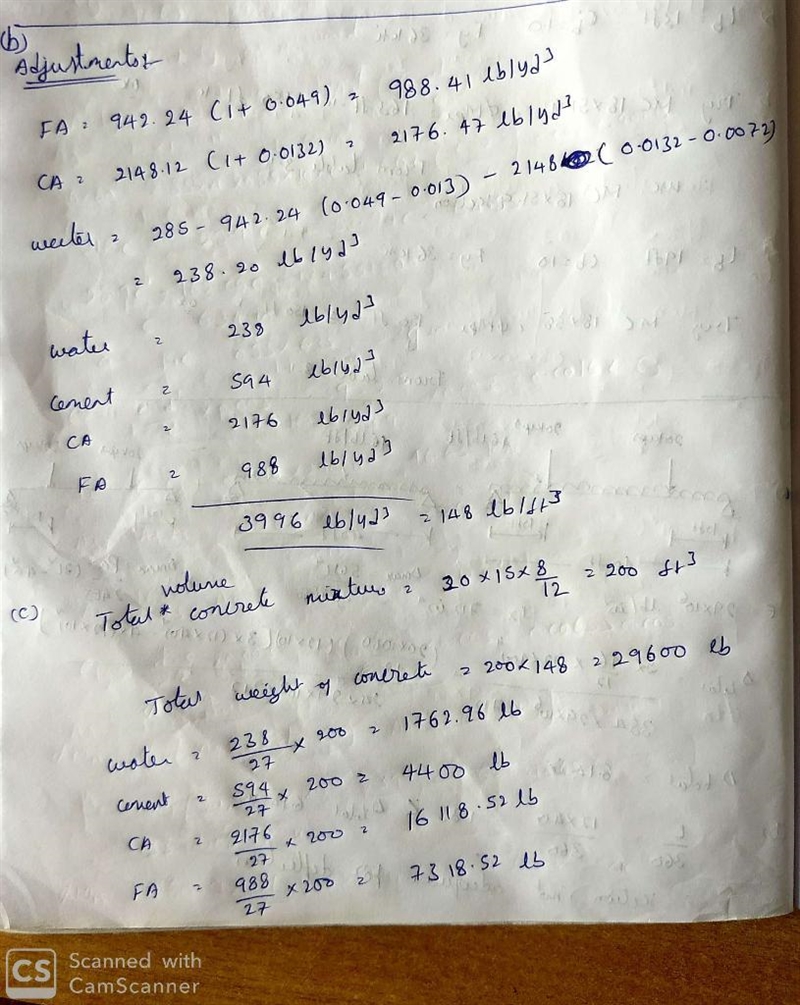 (b)
Adjustments:-
FA = 942.24 (1+ 0.049) = 988.41 lb/yd³
CA = 2148.12 (1+ 0.0132) = 2176.47 lb/yd³
water = 285 - 942.24 (0.049 - 0.013) - 2148 ( 0.0132 - 0.0072)
= 238.20 lb/yd³
water = 238 lb/yd³
cement = 594 lb/yd³
CA = 2176 lb/yd³
FA = 988 lb/yd³
3996 lb/yd³ = 148 lb/ft³
volume
(c) Total * concrete mixture = 20 × 15 × 8/12 = 200 ft³
Total weight of concrete = 200 × 148 = 29600 lb
water = 238/27 × 200 = 1762.96 lb
cement = 594/27 × 200 = 4400 lb
CA = 2176/27 × 200 = 16118.52 lb
FA = 988/27 × 200 = 7318.52 lb
CS Scanned with
CamScanner